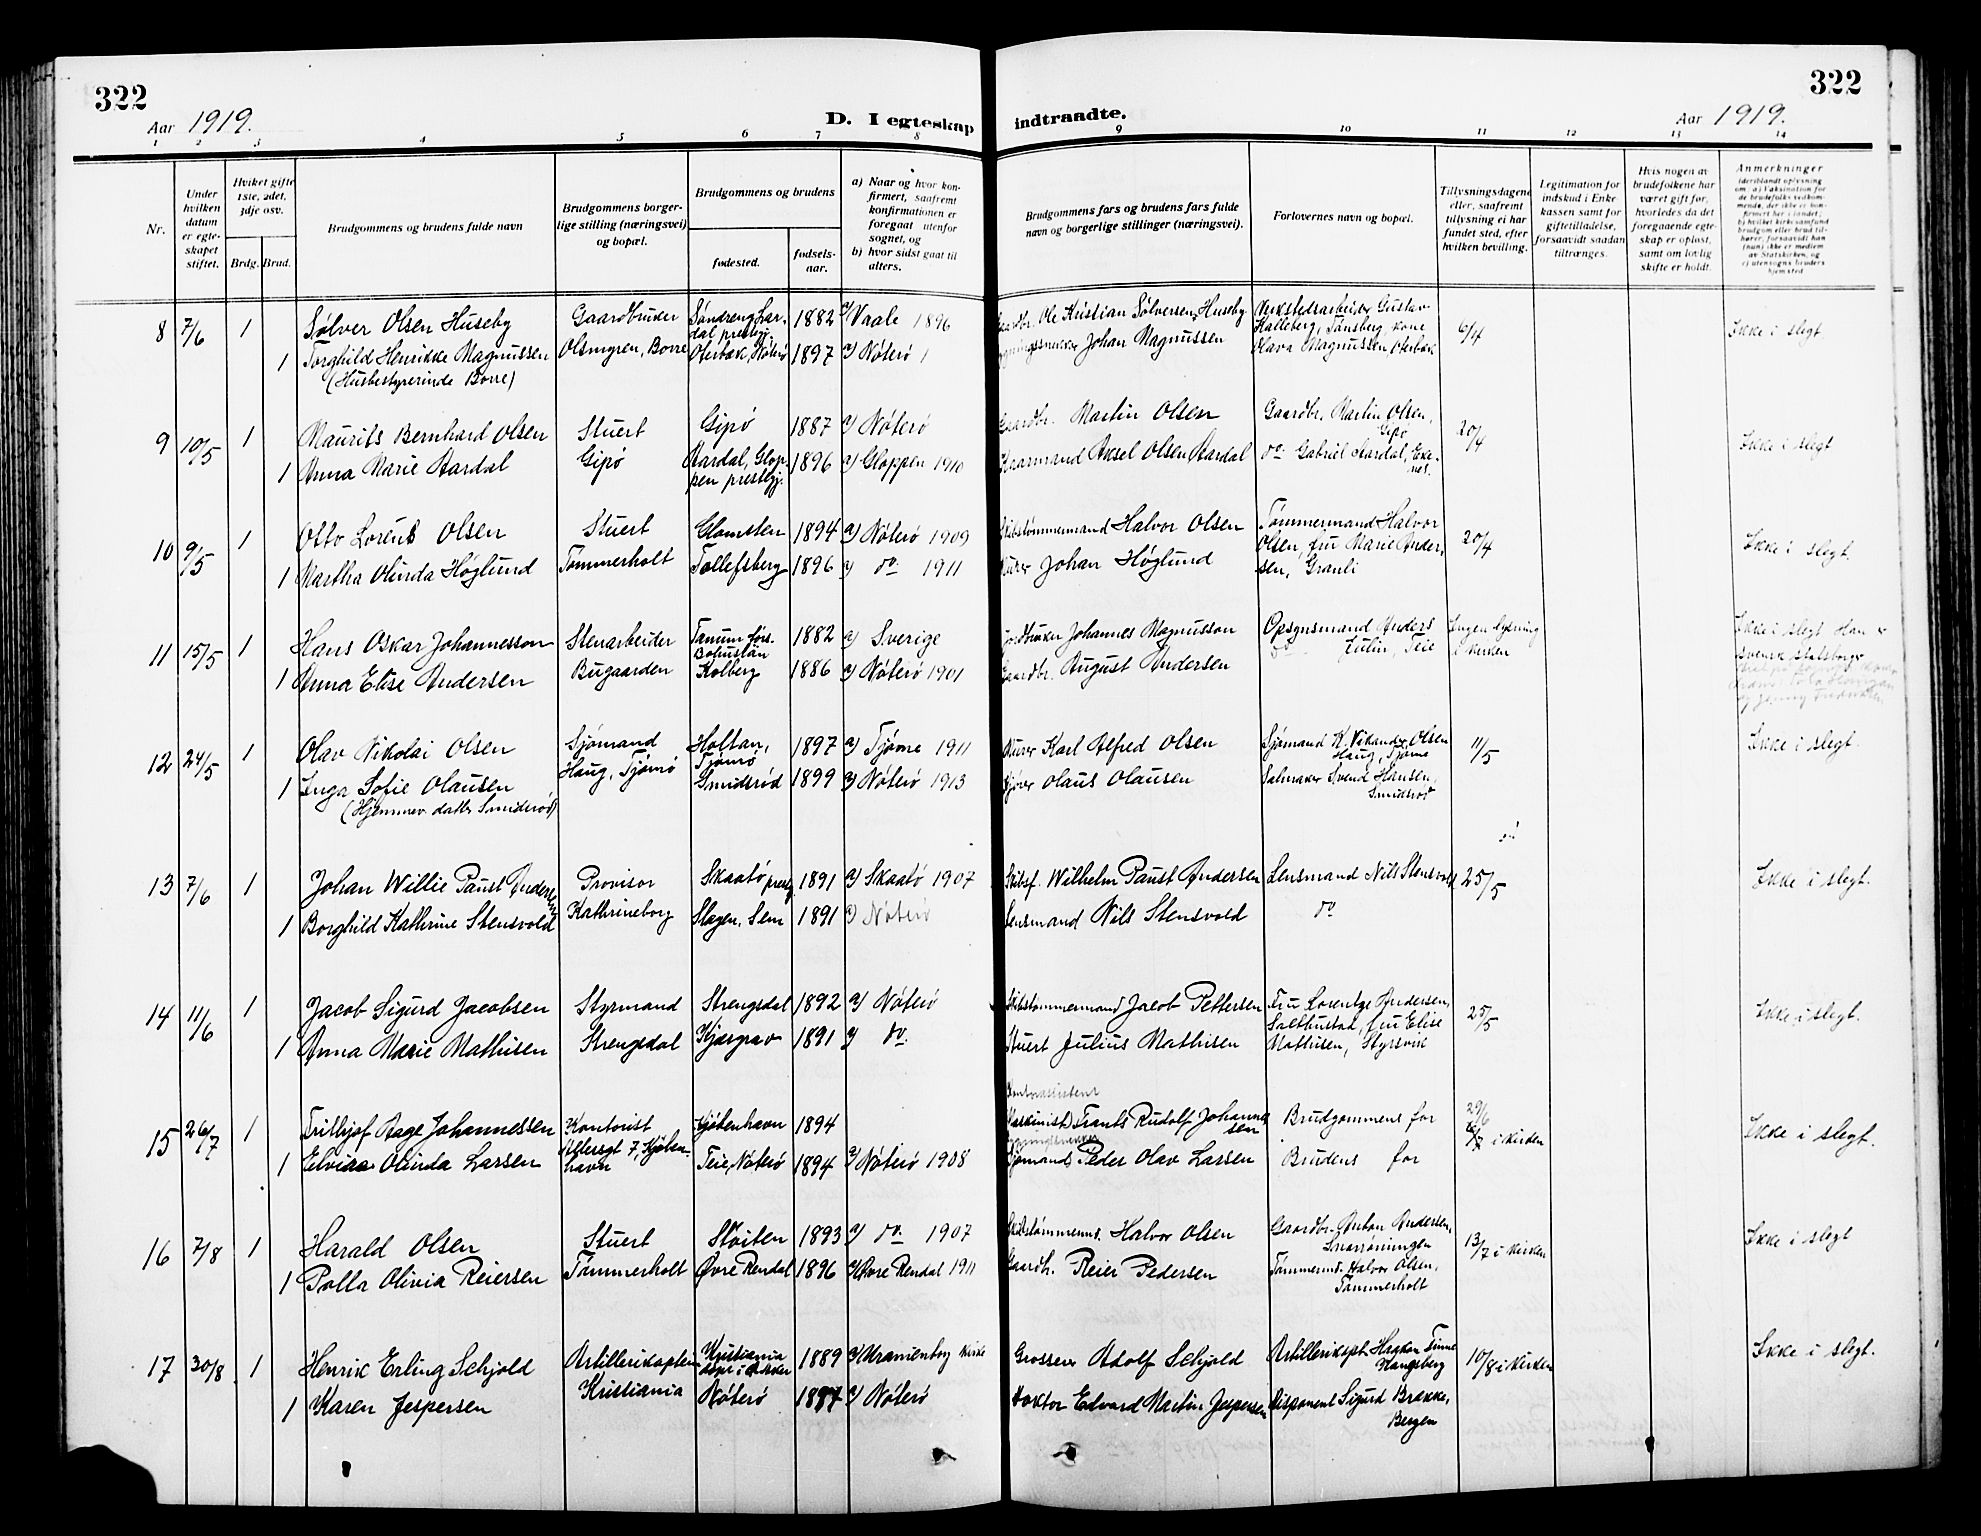 322
322
Aar 1919.
D. I egteskap indtraadte.
Aar 1919.
1 2 3 4 5 6 7 8 9 10 11 12 13 14
Nr.
Under hvilken datum er egteskapet stiftet.
Hviket gifte 1ste, 2det, 3dje osv.
Brdg. Brud.
Brudgommens og brudens fulde navn
Brudgommens borgerlige stilling (næringsvei) og bopæl.
Brudgommens og brudens
fødested.
fødselsaar.
a) Naar og hvor konfirmert, saafremt konfirmationen er foregaat utenfor sognet, og
b) hvor sidst gaat til alters.
Brudgommens fars og brudens fars fulde navn og borgerlige stillinger (næringsvei).
Forlovernes navn og bopæl.
Tillysningsdagene eller, saafremt tillysning ei har fundet sted, efter hvilken bevilling.
Legitimation for indskud i Enkekassen samt for giftetilladelse, forsaavidt saadan tiltrænges.
Hvis nogen av brudefolkene har været gift før, hvorledes da det foregaaende egteskap er opløst, samt om lovlig skifte er holdt.
Anmerkninger
(deriblandt oplysning om: a) Vaksination for de brudefolks vedkommende, der ikke er konfirmert her i landet; b) hvilket kirkesamfund brudgom eller brud tilhører, forsaavidt han (hun) ikke er medlem av Statskirken, og c) utensogns bruders hjemsted.
8 7/6 1 Sølver Olsen Huseby Gaardbruker Søndreng Lardal prestegj. 1882 a) Vaale 1896 Gaardbr. Ole Kristian Sølversen Huseby Verkstedsarbeider Gustav 6/4 Ikke i slegt.
1 Torghild Henrikke Magnussen Olsmgren, Borre Oterbæk, Nøterø 1897 a) Nøterø Johan Magnussen Kalleberg, Tønsberg, kone Olava Magnussen, Oterbæk
(Husbestyrerinde Borre)
9 10/5 1 Maurits Bernhard Olsen Stuert Gipø 1887 a) Nøterø Gaardbr. Martin Olsen Gaardbr. Martin Olsen, Gipø 20/4 Ikke i slegt
1 Anna Marie Aardal Gipø Aardal, Gloppen prestegj. 1896 a) Gloppen 1910 Kaarmand Aksel Olsen Aardal do: Gabriel Aardal, Ekenes.
10 9/5 1 Otto Lorents Olsen Stuert Glomsten 1894 a) Nøterø 1909 Skibstømmermand Halvor Olsen Tømmermand Halvor 20/4 Ikke i slegt.
1 Martha Olinda Høglund Tømmerholt Tollefsberg 1896 a) do: 1911 Johan Høglund Olsen, fru Marie Andersen, Granli
11 15/5 1 Hans Oskar Johannesson Stenarbeider Tanum förs. Bohuslän 1882 a) Sverige Jordbruker Johannes Magnusson Opsynsmand Anders Ingen lysning i kirken Ikke i slegt Han er svensk statsborger
1 Anna Elise Andersen Bugaarden Kolberg 1886 a) Nøterø 1901 Gaardbr. August Andersen Julin, Teie
12 24/5 1 Olav Nikolai Olsen Sjømand Holtan, Tjømø 1897 a) Tjømø 1911 Karl Alfred Olsen Sjømand K. Nikander Olsen Haug, Tjømø 11/5 Ikke i slegt.
1 Inga Sofie Olausen Haug, Tjømø Smidsrød 1899 a) Nøterø 1913 Olaus Olausen Salmaker Svend Hansen, Smidsrød
(Hjemmev. datter Smidsrød)
13 7/6 1 Johan Willie Paust Andersen Provisor Skaatø prestg 1891 a) Skaatø 1907 Skibsf. Wilhelm Paust Andersen Lensmand Nils Stensvold 25/5 Ikke i slegt.
1 Borghild Kathrine Stensvold Kathrineborg Slagen, Sem 1891 a) Nøterø Lensmand Nils Stensvold do
14 11/6 1 Jacob Sigurd Jacobsen Styrmand Strengsdal 1892 a) Nøterø Skibstømmermand Jacob Pettersen Fru Lorentze Andersen, 25/5 Ikke i slegt.
1 Anna Marie Mathisen Strengsdal Kjøpgrav 1891 a) do: Stuert Julius Mathisen Salthustad, fru Elise Mathisen, Styrsvik
15 26/7 1 Frithjof Aage Johannessen Kontorist Kjøbenhavn 1894 Maskinist Frants Rudolf Johannessen Brudgommens far 29/6 6/7 i kirken Ikke i slegt.
1 Elvira Olinda Larsen Allersgt 7, Kjøbenhavn Teie, Nøterø 1894 a) Nøterø 1908 Sjømand Peder Olav Larsen Brudens far
16 7/8 1 Harald Olsen Stuert Støiten 1893 a) do: 1907 Skibstømmerm. Halvor Olsen Gaardbr. Anton Andersen, Snarrøningen 13/7 i kirken Ikke i slegt
1 Palla Olivia Reiersen Tømmerholt Øvre Rendal 1896 a) Øvre Rendal 1911 Gaardb. Reier Pedersen Tømmermd. Halvor Olsen, Tømmerholt
17 30/8 1 Henrik Erling Schjold Artillerikaptein Kristiania 1889 a) Uranienborg kirke Grosserer Adolf Schjold Artillerikapt. Haakon Finne Haugsberg 10/8 i kirken Ikke i slegt.
1 Karen Jespersen Kristiania Nøterø 1887 a) Nøterø Doktor Edvard Martin Jespersen Disponent Sigurd Brække, Bergen